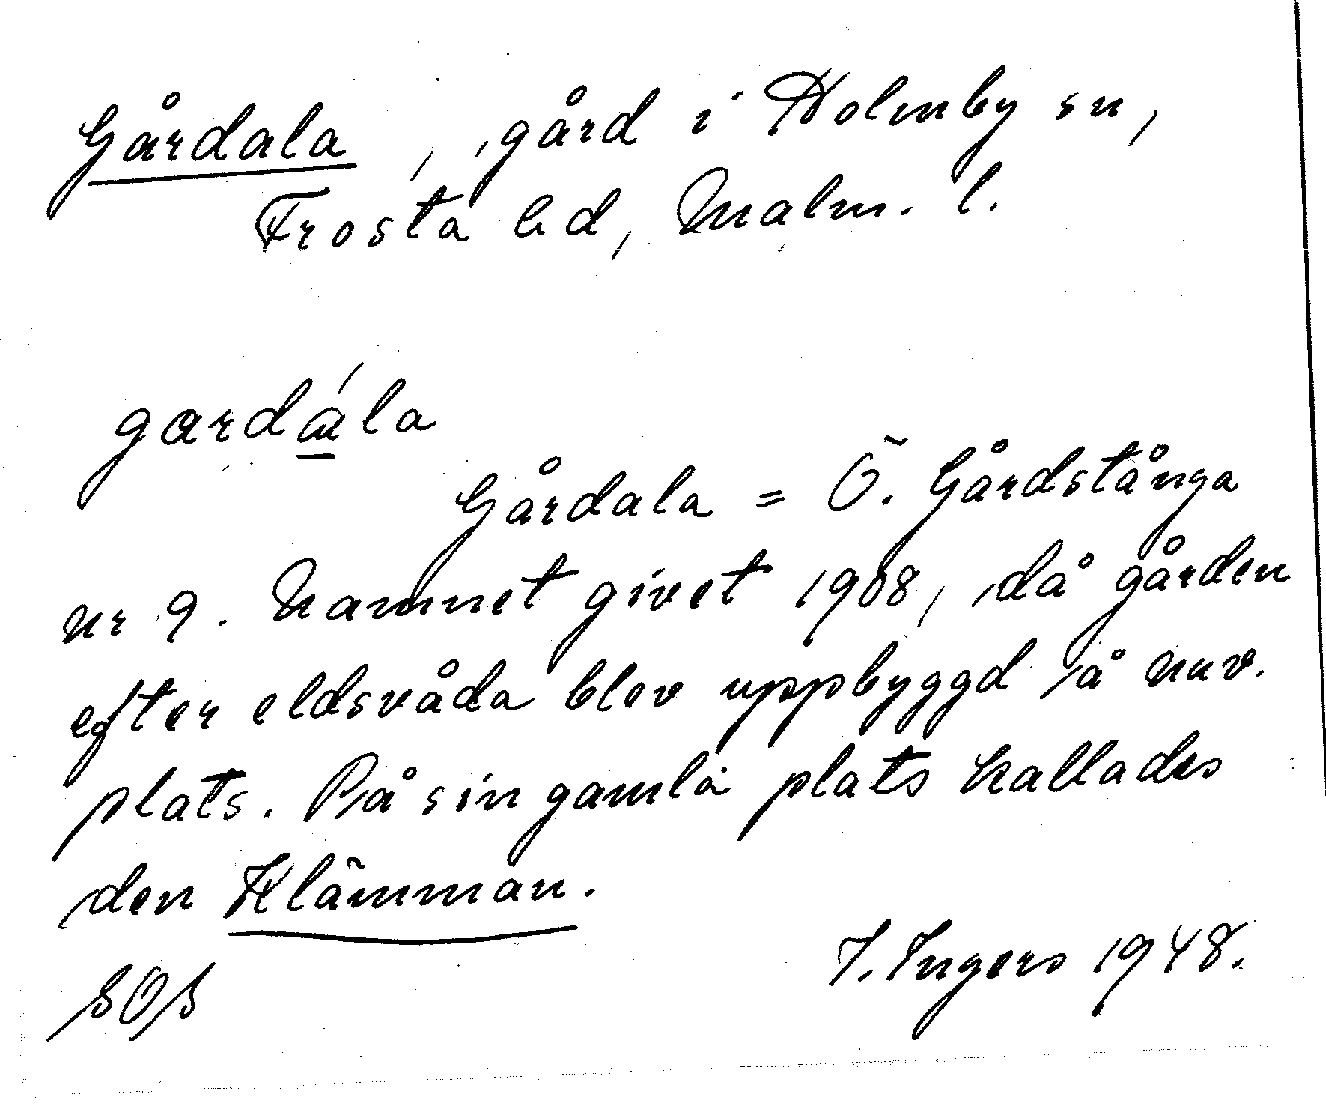 Gårdala, gård i Holmby sn,
Frosta hd, Malm. l.
gardála
Gårdala = Ö. Gårdstånga
nr 9. Namnet givet 1908, då gården
efter eldsvåda blev uppbyggd å nuv.
plats. På sin gamla plats kallades
den Klämman.
I. Ingers 1948.
SOS